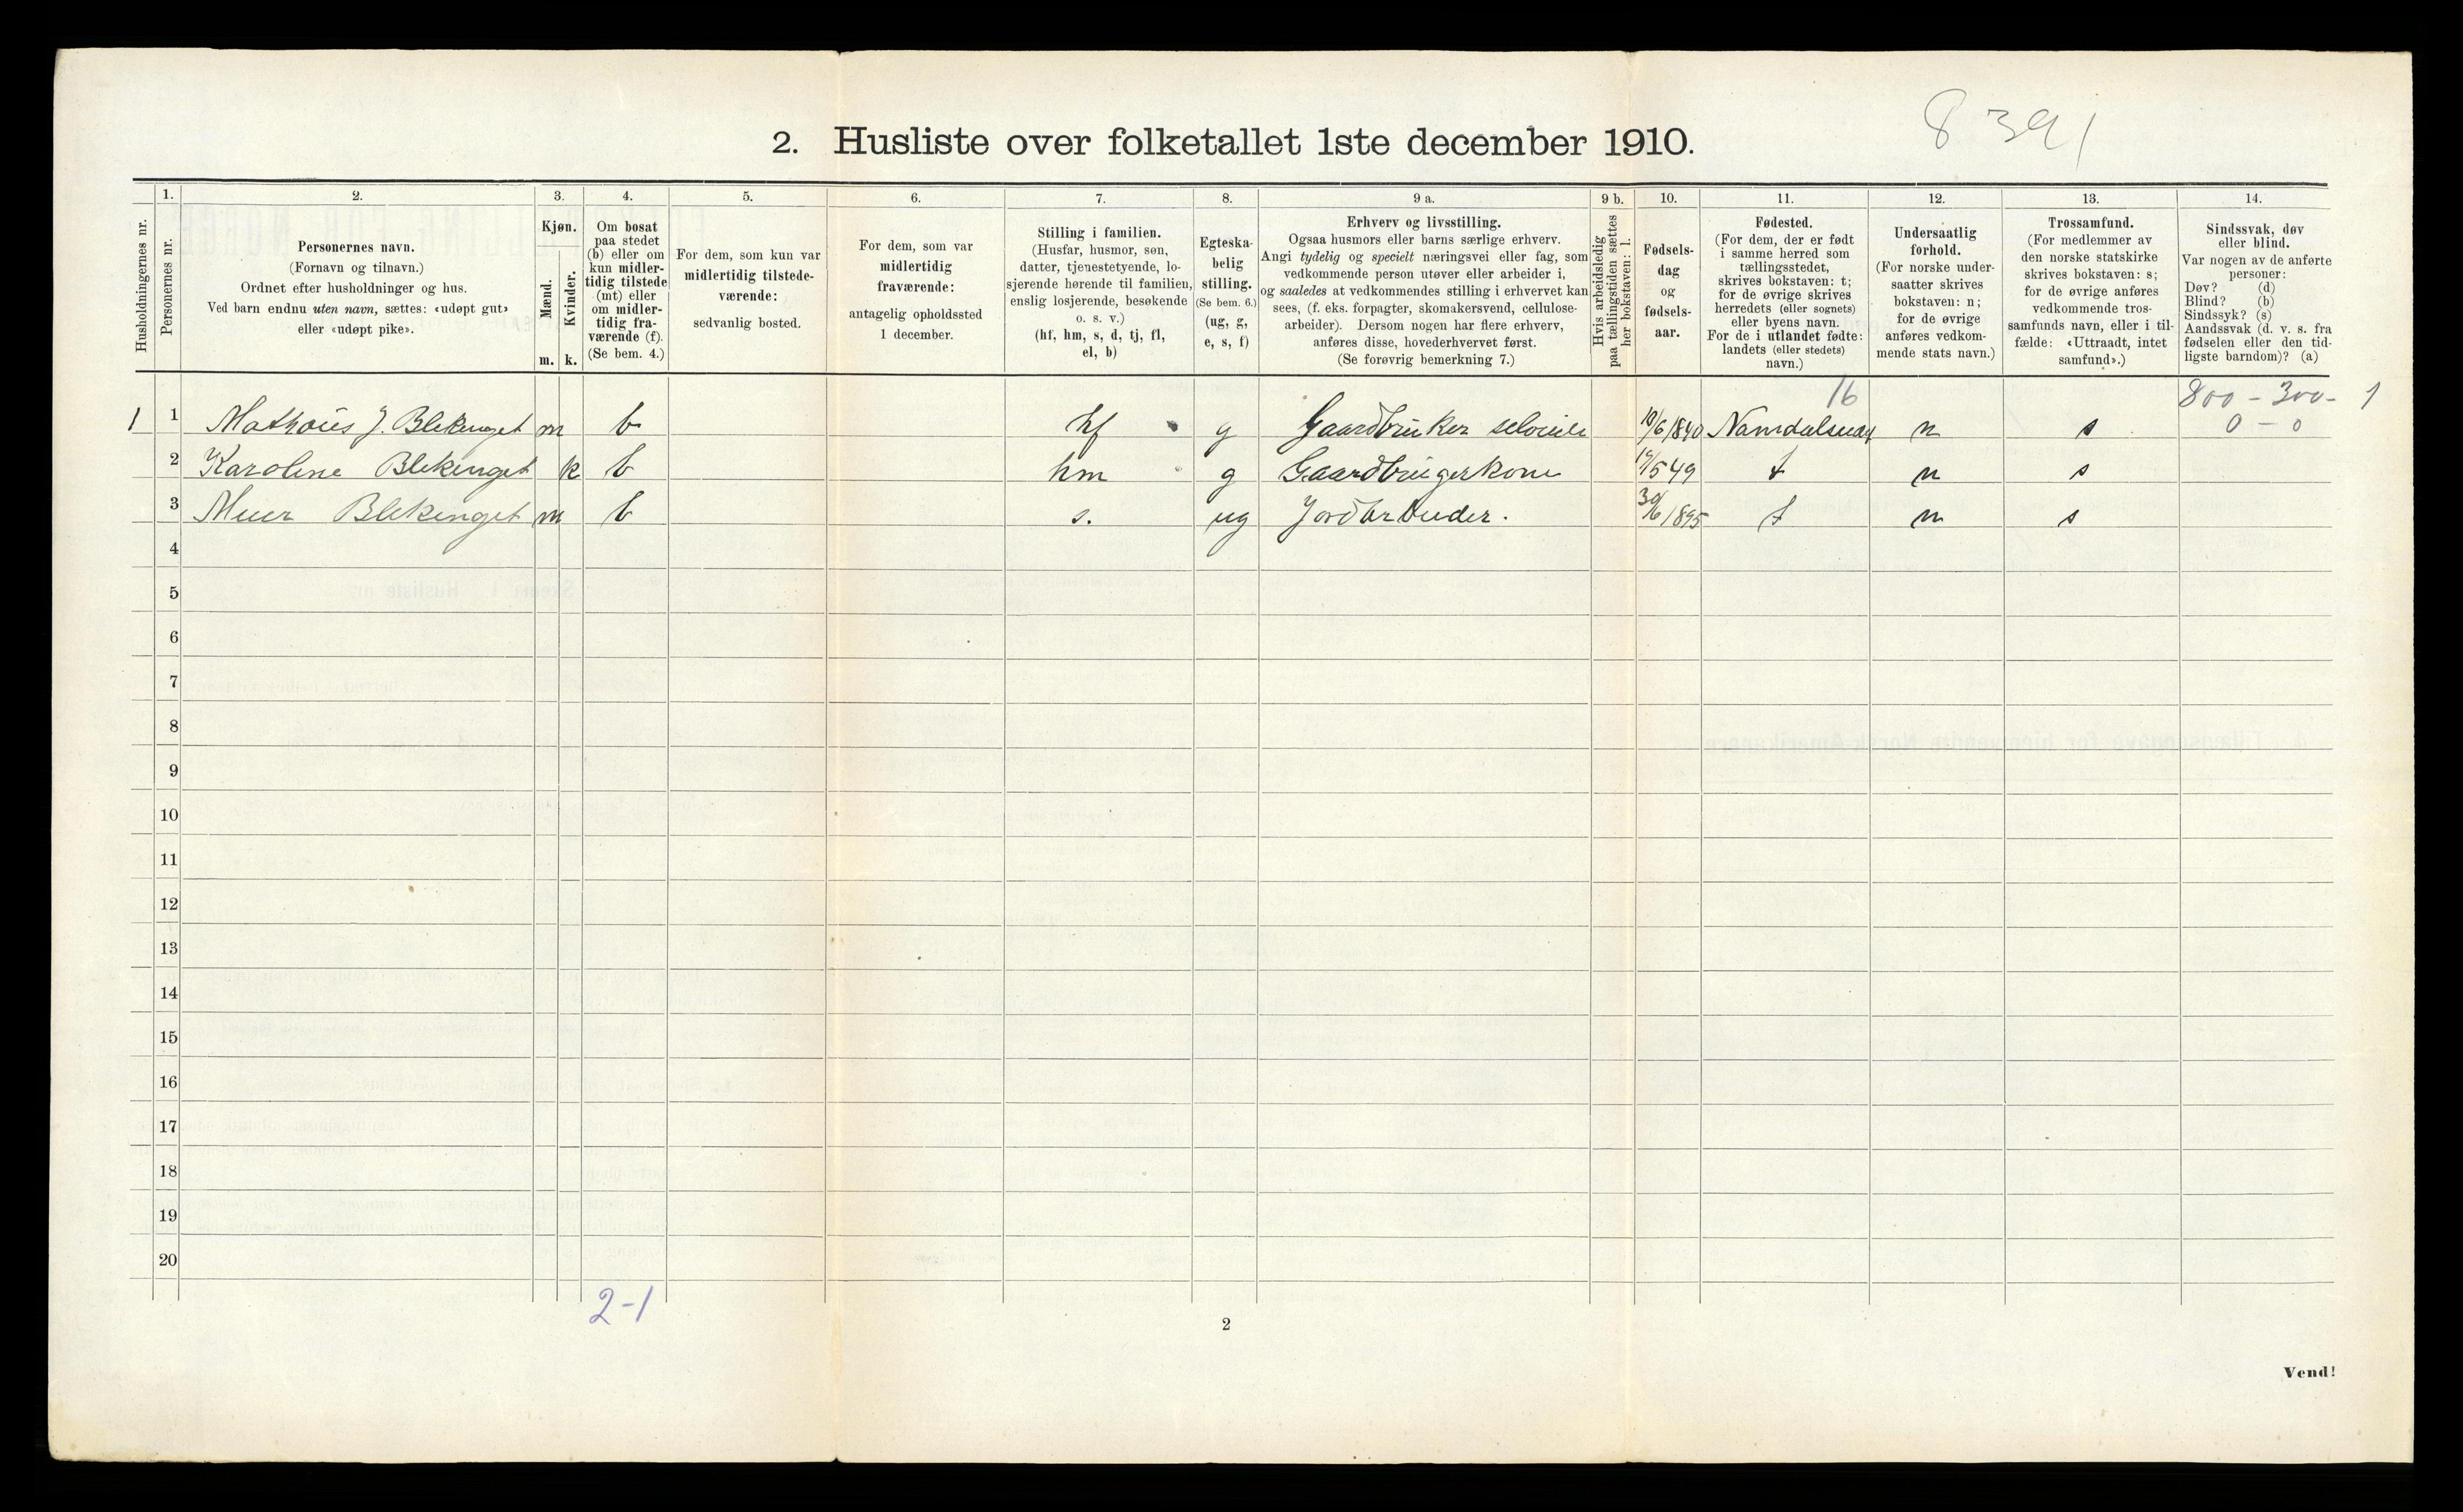 8 391
2. Husliste over folketallet 1ste december 1910.
Husholdningernes nr.
1.
Personernes nr.
2.
Personernes navn.
(Fornavn og tilnavn.)
Ordnet efter husholdninger og hus.
Ved barn endnu uten navn, sættes: «udøpt gut»
eller «udøpt pike».
3.
Kjøn.
Mænd.
Kvinder.
m. k.
4.
Om bosat
paa stedet
(b) eller om
kun midler-
tidig tilstede
(mt) eller
om midler-
tidig fra-
værende (f).
(Se bem. 4.)
5.
For dem, som kun var
midlertidig tilstede-
værende:
sedvanlig bosted.
6.
For dem, som var
midlertidig
fraværende:
antagelig opholdssted
1 december.
7.
Stilling i familien.
(Husfar, husmor, søn,
datter, tjenestetyende, lo-
sjerende hørende til familien,
enslig losjerende, besøkende
o. s. v.)
(hf, hm, s, d, tj, fl,
el, b)
8.
Egteska-
belig
stilling.
(Se bem. 6.)
(ug, g,
e, s, f)
9 a.
Erhverv og livsstilling.
Ogsaa husmors eller barns særlige erhverv.
Angi tydelig og specielt næringsvei eller fag, som
vedkommende person utøver eller arbeider i,
og saaledes at vedkommendes stilling i erhvervet kan
sees, (f. eks. forpagter, skomakersvend, cellulose-
arbeider). Dersom nogen har flere erhverv,
anføres disse, hovederhvervet først.
(Se forøvrig bemerkning 7.)
9 b.
Hvis arbeidsledig
paa tællingstiden sættes
her bokstaven: l.
10.
Fødsels-
dag
og
fødsels-
aar.
11.
Fødested.
(For dem, der er født
i samme herred som
tællingsstedet,
skrives bokstaven: t;
for de øvrige skrives
herredets (eller sognets)
eller byens navn.
For de i utlandet fødte:
landets (eller stedets)
navn.)
12.
Undersaatlig
forhold.
(For norske under-
saatter skrives
bokstaven: n;
for de øvrige
anføres vedkom-
mende stats navn.)
13.
Trossamfund.
(For medlemmer av
den norske statskirke
skrives bokstaven: s;
for de øvrige anføres
vedkommende tros-
samfunds navn, eller i til-
fælde: «Uttraadt, intet
samfund».)
14.
Sindssvak, døv
eller blind.
Var nogen av de anførte
personer:
Døv? (d)
Blind? (b)
Sindssyk? (s)
Aandssvak (d. v. s. fra
fødselen eller den tid-
ligste barndom)? (a)
16 800 - 300 - 1
1 1 J. Blekenget m b hf g Gaardbruker 10/6 1840 n s 0 - 0
2 Karoline Blekenget k b hm g Gaardbrugerkone 549 t n s
3 Blekenget m b s. ug 30/6 1895 t n s
4
5
6
7
8
9
10
11
12
13
14
15
16
17
18
19
20
2-1
2
Vend!